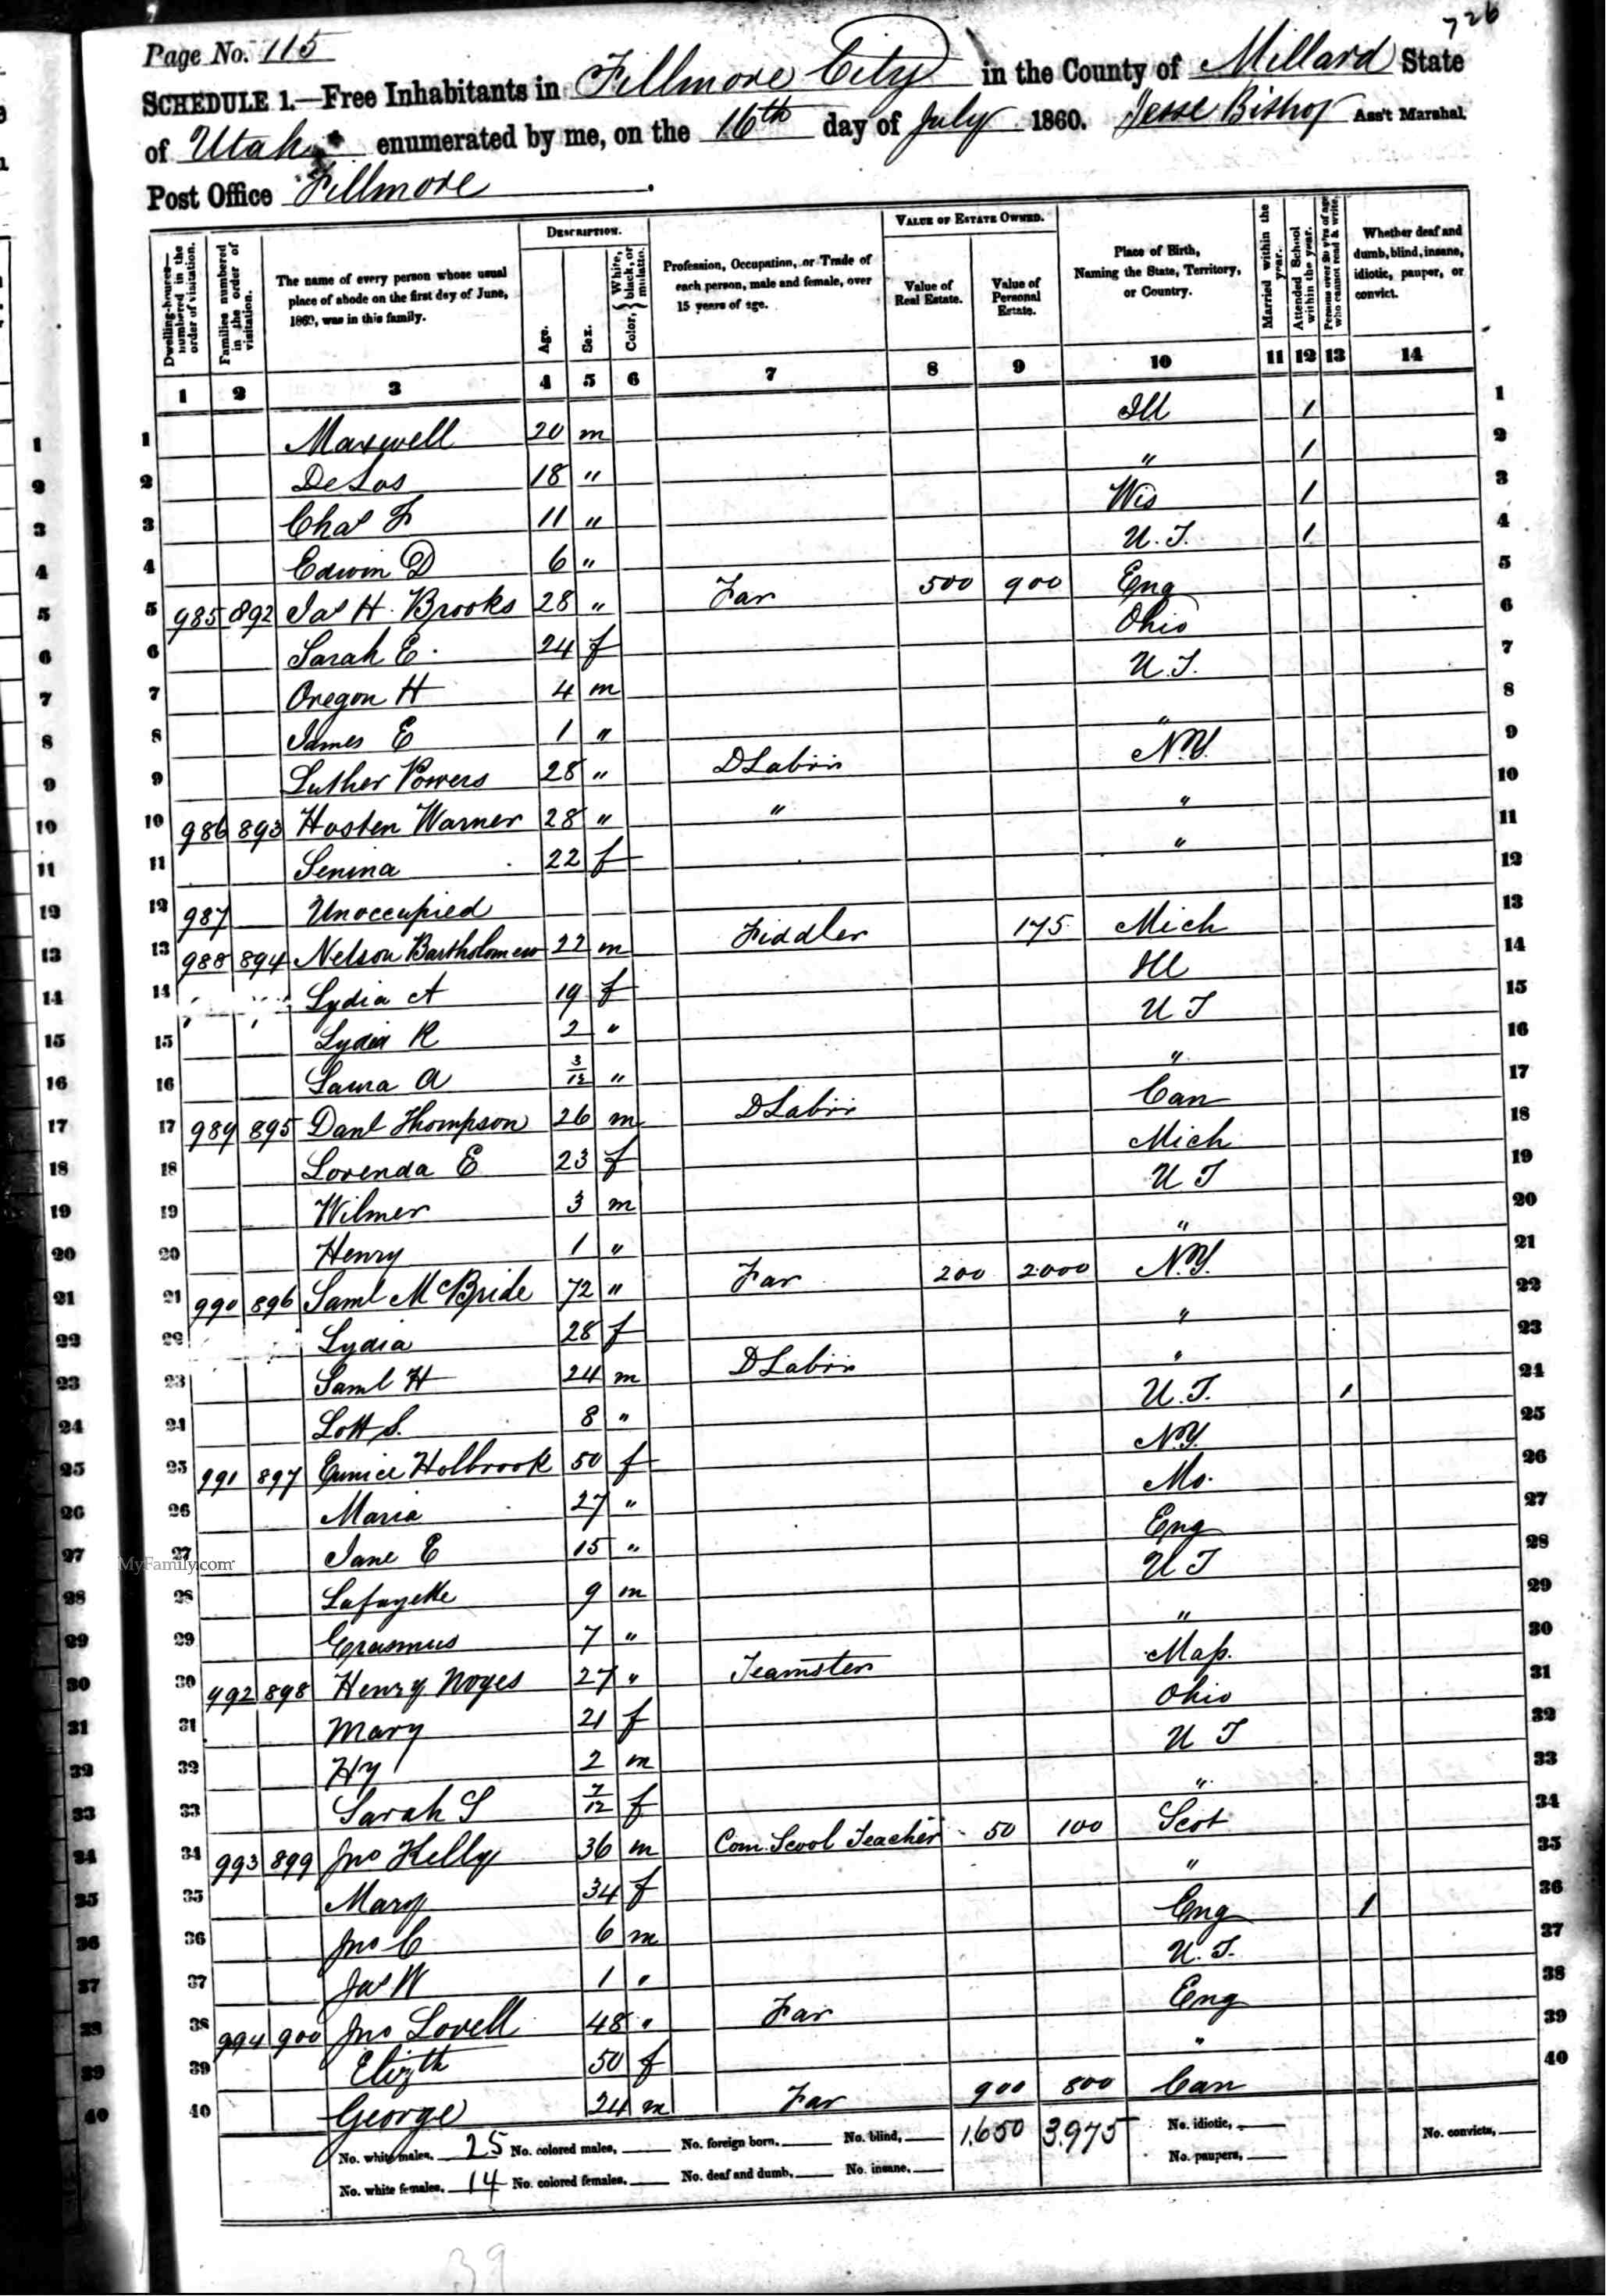 726
Page No. 115
SCHEDULE 1.—Free Inhabitants in Fillmore City in the County of Millard State
of Utah enumerated by me, on the 16th day of July 1860. Jesse Bishop Ass't Marshal.
Post Office Fillmore.
Dwelling-houses—numbered in the order of visitation.
Families numbered in the order of visitation.
The name of every person whose usual place of abode on the first day of June, 1860, was in this family.
DESCRIPTION.
Age.
Sex.
Color, { White, black, or mulatto.
Profession, Occupation, or Trade of each person, male and female, over 15 years of age.
VALUE OF ESTATE OWNED.
Value of Real Estate.
Value of Personal Estate.
Place of Birth, Naming the State, Territory, or Country.
Married within the year.
Attended School within the year.
Persons over 20 y'rs of age who cannot read & write.
Whether deaf and dumb, blind, insane, idiotic, pauper, or convict.
1 2 3 4 5 6 7 8 9 10 11 12 13 14
1 Maxwell 20 m Ill 1 1
2 DeLos 18 " " 1 2
3 Chas F 11 " Wis 1 3
4 Edwin D 6 " U.T. 1 4
5 985 892 Jas H. Brooks 28 " Far 500 900 Eng 5
6 Sarah E. 24 f Ohio 6
7 Oregon H 4 m U.T. 7
8 James E 1 " " 8
9 Luther Powers 28 " D Labrr N.Y. 9
10 986 893 Hosten Warner 28 " " " 10
11 Senina 22 f " 11
12 987 Unoccupied 12
13 988 894 Nelson Bartholomew 22 m Fiddler 175 Mich 13
14 Lydia A 19 f Ill 14
15 Lydia R 2 " U T 15
16 Laura A 3/12 " " 16
17 989 895 Danl Thompson 26 m D Labrr Can 17
18 Lorenda E 23 f Mich 18
19 Wilmer 3 m U T 19
20 Henry 1 " " 20
21 990 896 Saml McBride 72 " Far 200 2000 N.Y. 21
22 Lydia 28 f " 22
23 Saml H 24 m D Labrr " 23
24 Lott S. 8 " U.T. 1 24
25 991 897 Eunice Holbrook 50 f N.Y. 25
26 Maria 27 " Mo. 26
27 Jane E 15 " Eng 27
28 Lafayette 9 m U T 28
29 Erasmus 7 " " 29
30 992 898 Henry Noyes 27 " Teamster Mass. 30
31 Mary 21 f Ohio 31
32 Hy 2 m U T 32
33 Sarah S 7/12 f " 33
34 993 899 Jno Kelly 36 m Com. Scool Teacher 50 100 Scot 34
35 Mary 34 f " 35
36 Jno C 6 m Eng 1 36
37 Jas W 1 " U.T. 37
38 994 900 Jno Lovell 48 " Far Eng 38
39 Elizth 50 f " 39
40 George 24 m Far 900 800 Can 40
No. white males, 25 No. colored males, No. foreign born, No. blind, 1,650 3,975 No. idiotic, No. convicts,
No. white females, 14 No. colored females, No. deaf and dumb, No. insane, No. paupers,
MyFamily.com
39